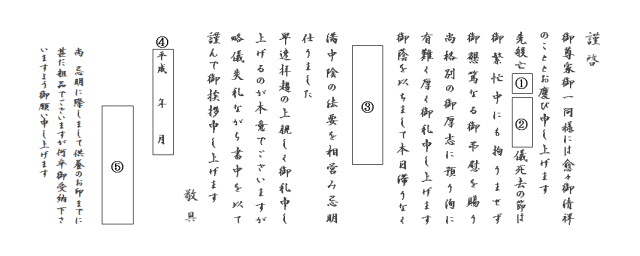 謹啓
御尊家御一同様には愈々御清祥
のこととお慶び申し上げます
先般亡①②儀死去の節は
御繁忙中にも拘りませず
御懇篤なる御弔慰を賜り
尚格別の御厚志に預り洵に
有難く厚く御礼申し上げます
御蔭を以ちまして本日滞りなく
③
満中陰の法要を相営み忌明
仕りました
早速拝趨の上親しく御礼申し
上げるのが本意でございますが
略儀失礼ながら書中を以て
謹んで御挨拶申し上げます
敬具
④
平成 年 月
⑤
尚 忌明に際しまして供養のお印までに
甚だ粗品でございますが何卒御受納下さ
いますよう御願い申し上げます